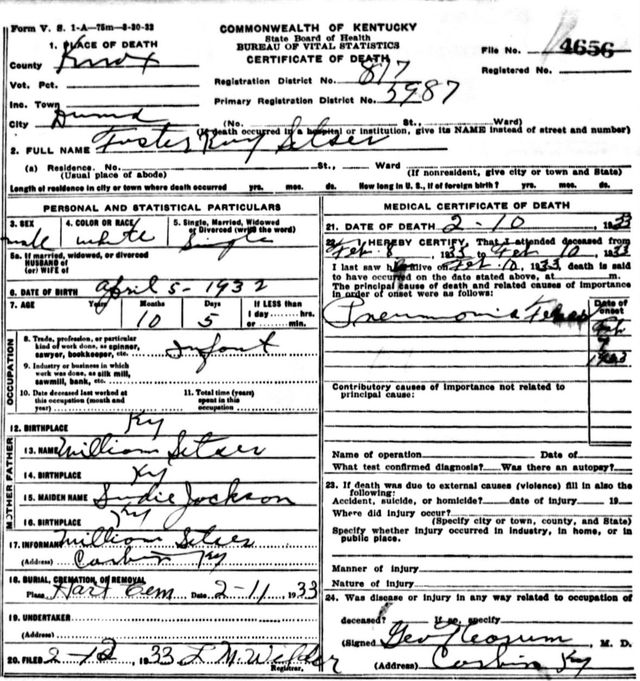 Form V. S. 1-A—75m—8-30-32
COMMONWEALTH OF KENTUCKY
State Board of Health
BUREAU OF VITAL STATISTICS
CERTIFICATE OF DEATH
File No. 4656
Registered No.
1. PLACE OF DEATH
County Knox
Vot. Pct.
Inc. Town
City
Registration District No. 817
Primary Registration District No. 5987
(No. St., Ward)
(If death occurred in a hospital or institution, give its NAME instead of street and number)
2. FULL NAME Foster Ray Setser
(a) Residence. No. St., Ward
(Usual place of abode) (If nonresident, give city or town and State)
Length of residence in city or town where death occurred yrs. mos. ds. How long in U. S., if of foreign birth? yrs. mos. ds.
PERSONAL AND STATISTICAL PARTICULARS
3. SEX 4. COLOR OR RACE 5. Single, Married, Widowed or Divorced (write the word)
male white Single
5a. If married, widowed, or divorced
HUSBAND of
(or) WIFE of
6. DATE OF BIRTH April 5-1932
7. AGE Years Months Days If LESS than
1 day hrs.
or min.
10 5
OCCUPATION
8. Trade, profession, or particular
kind of work done, as spinner,
sawyer, bookkeeper, etc. Infant
9. Industry or business in which
work was done, as silk mill,
sawmill, bank, etc.
10. Date deceased last worked at
this occupation (month and
year)
11. Total time (years)
spent in this
occupation
12. BIRTHPLACE Ky
FATHER
13. NAME William Setser
14. BIRTHPLACE Ky
MOTHER
15. MAIDEN NAME Sudie Jackson
16. BIRTHPLACE Ky
17. INFORMANT William Setser
(Address) Corbin Ky
18. BURIAL, CREMATION, OR REMOVAL
Place Hart Cem Date 2-11, 1933
19. UNDERTAKER
(Address)
20. FILED 2-12 1933 L M Wilder
Registrar.
MEDICAL CERTIFICATE OF DEATH
21. DATE OF DEATH 2-10, 1933
22. I HEREBY CERTIFY, That I attended deceased from
Feb 8, 1933 to Feb 10, 1933
I last saw h alive on Feb 10, 1933, death is said
to have occurred on the date stated above, at m.
The principal cause of death and related causes of importance
in order of onset were as follows:
Date of
onset
Pneumonia
Feb
Contributory causes of importance not related to
principal cause:
Name of operation Date of
What test confirmed diagnosis? Was there an autopsy?
23. If death was due to external causes (violence) fill in also the
following:
Accident, suicide, or homicide? date of injury 19
Where did injury occur?
(Specify city or town, county, and State)
Specify whether injury occurred in industry, in home, or in
public place.
Manner of injury
Nature of injury
24. Was disease or injury in any way related to occupation of
deceased? If so, specify
(Signed) Geo M. D.
(Address) Corbin Ky